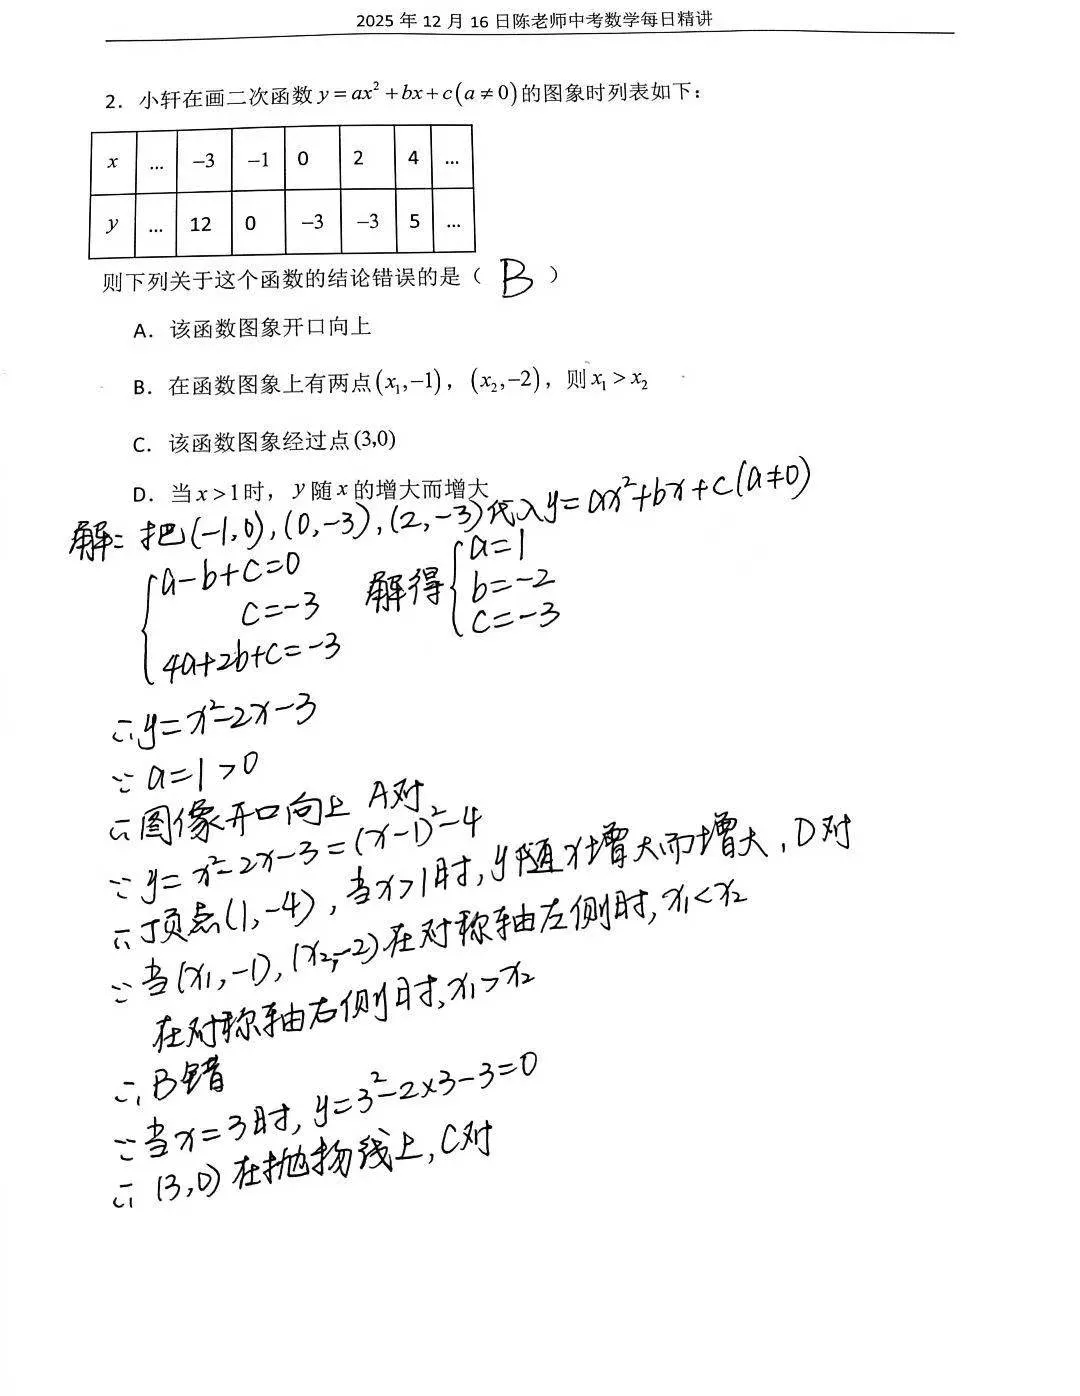 2025 年 12 月 16 日陈老师中考数学每日精讲
2．小轩在画二次函数 y = ax² + bx + c (a ≠ 0) 的图象时列表如下：
x … −3 −1 0 2 4 …
y … 12 0 −3 −3 5 …
则下列关于这个函数的结论错误的是（ B ）
A．该函数图象开口向上
B．在函数图象上有两点 (x₁,−1)，(x₂,−2)，则 x₁ > x₂
C．该函数图象经过点 (3,0)
D．当 x > 1 时，y 随 x 的增大而增大
解：把(-1,0),(0,-3),(2,-3)代入y=ax²+bx+c(a≠0)
{a-b+c=0
c=-3
4a+2b+c=-3
解得{a=1
b=-2
c=-3
∴y=x²-2x-3
∵a=1>0
∴图像开口向上 A对
∵y=x²-2x-3=(x-1)²-4
∴顶点(1,-4),当x>1时,y随x增大而增大,D对
∵当(x₁,-1),(x₂,-2)在对称轴左侧时,x₁<x₂
在对称轴右侧时,x₁>x₂
∴B错
∵当x=3时,y=3²-2×3-3=0
∴(3,0)在抛物线上,C对